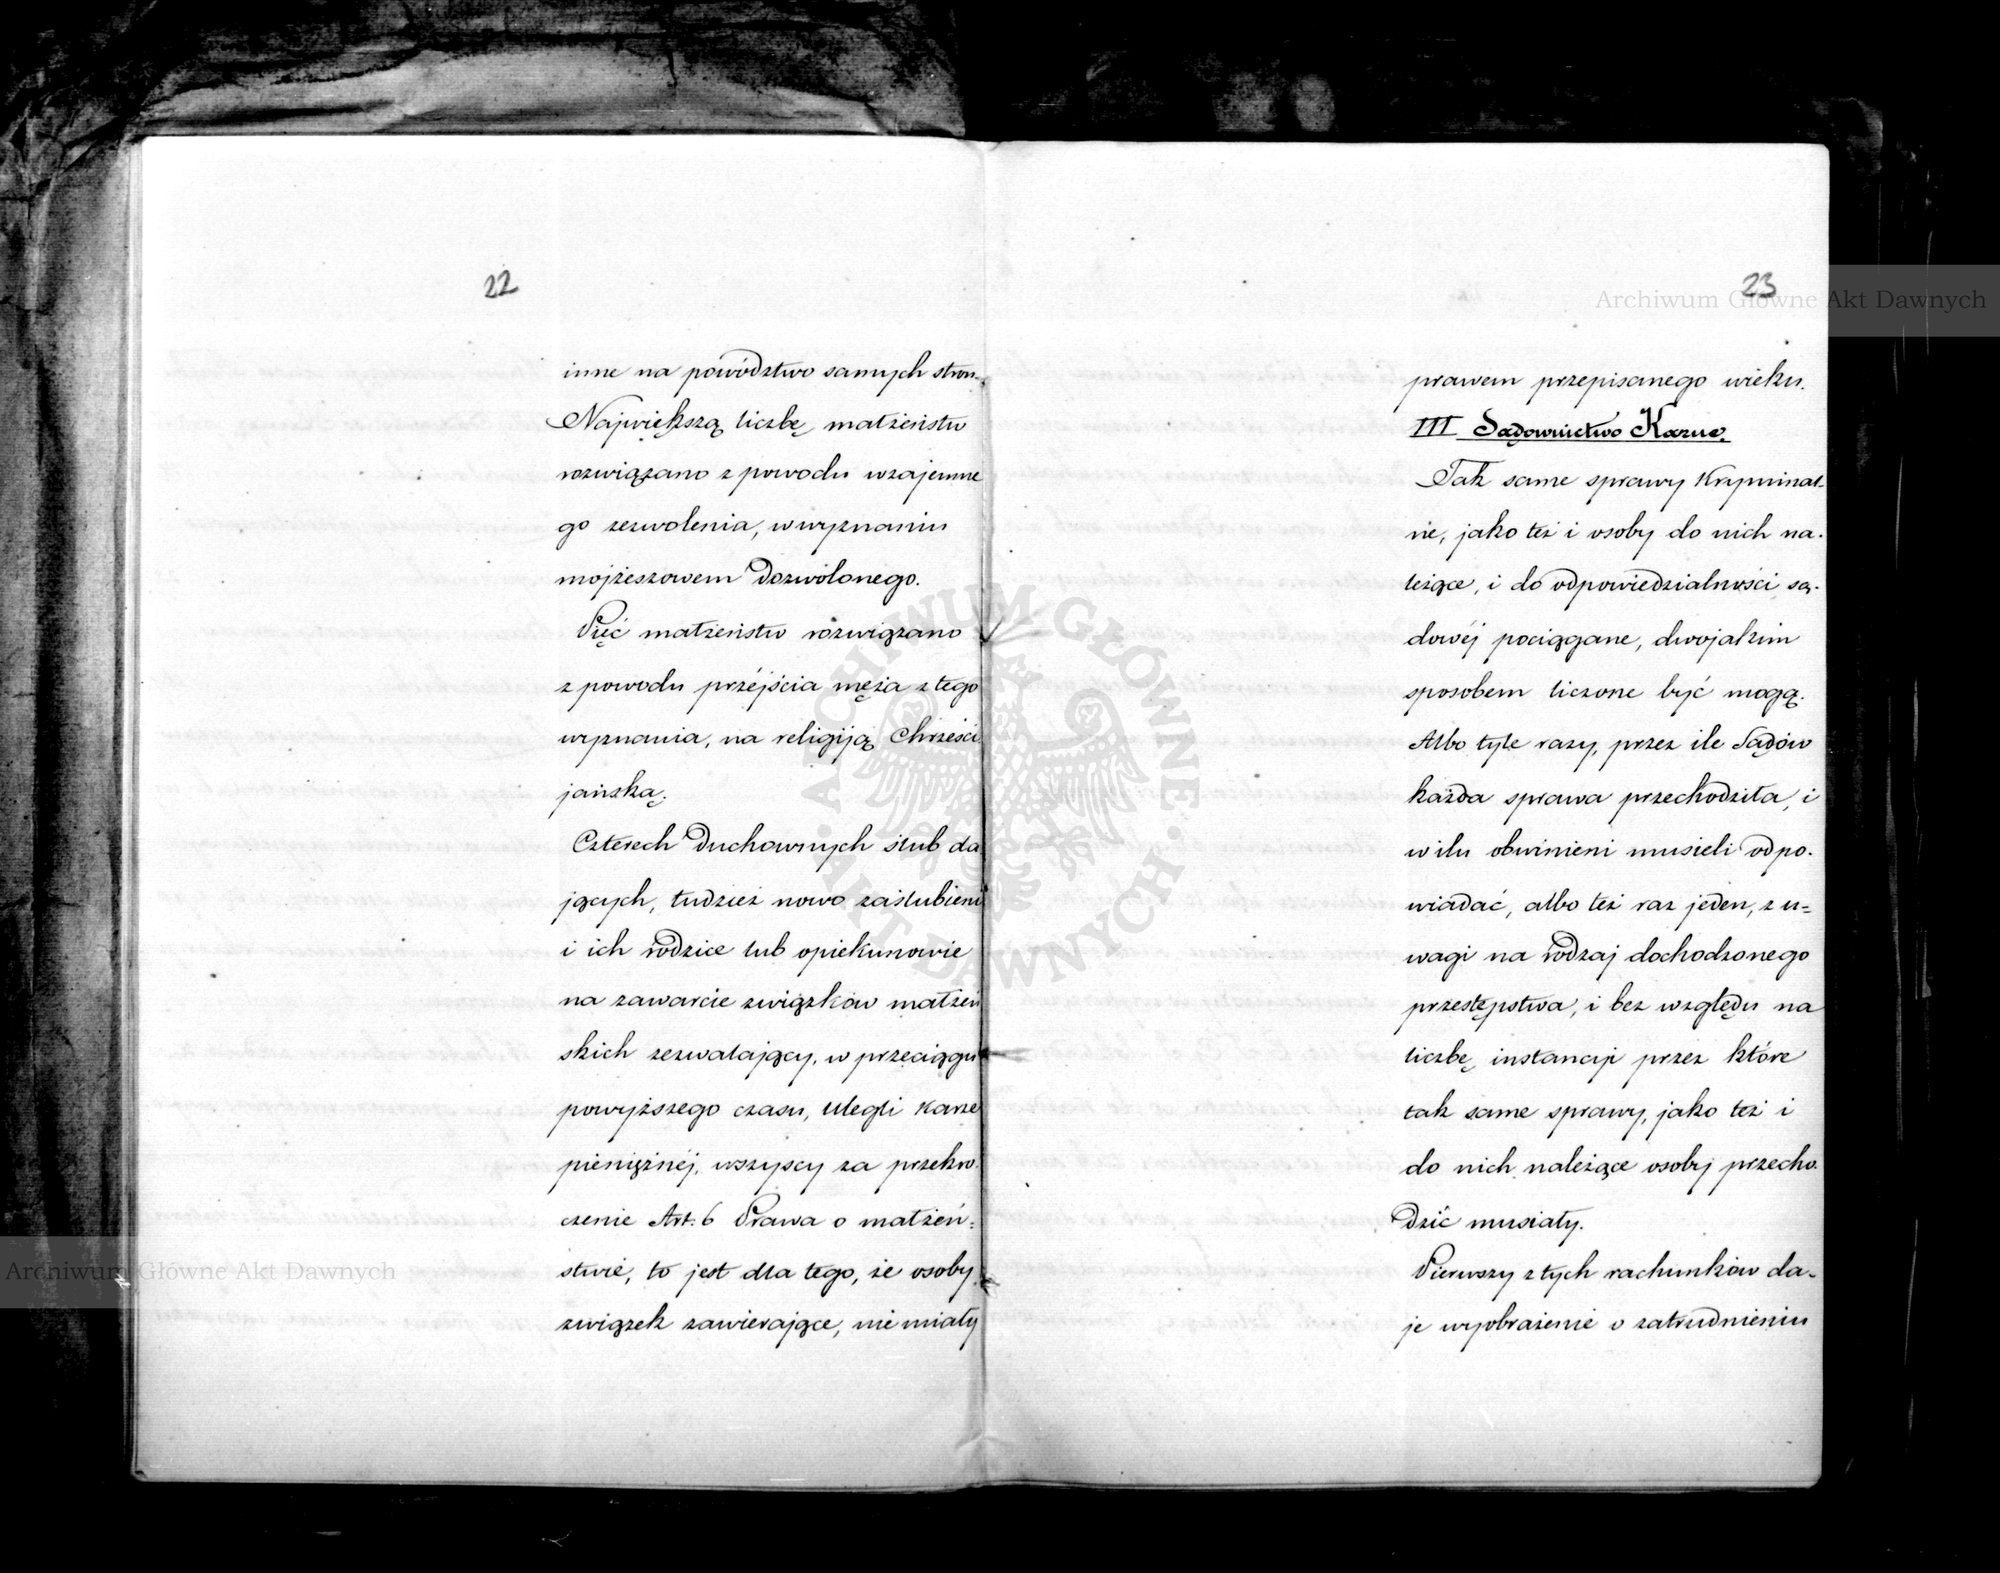 22
inne na powództwo samych stron.
Największą liczbę małżeństw
rozwiązano z powodu wzajemne
go zezwolenia, w wyznaniu
mojżeszowem dozwolonego.
Pięć małżeństw rozwiązano
z powodu przéjścia męża z tego
wyznania, na religiją Chrześci
jańską.
Czterech Duchownych ślub da
jących, tudzież nowo zaślubieni
i ich rodzice lub opiekunowie
na zawarcie związków małżeń
skich zezwalający, w przeciągu
powyższego czasu, ulegli karze
pieniężnéj, wszyscy za przekro
czenie Art. 6 Prawa o małżeń=
stwie, to jest dla tego, że osoby
związek zawierające, nie miały
23
prawem przepisanego wieku.
III Sądownictwo Karne.
Tak same sprawy Kryminal-
ne, jako też i osoby do nich na-
leżące, i do odpowiedzialności są-
dowéj pociągane, dwojakim
sposobem liczone być mogą.
Albo tyle razy, przez ile Sądów
każda sprawa przechodziła, i
w ilu obwinieni musieli odpo-
wiadać, albo też raz jeden, z u=
wagi na rodzaj dochodzonego
przestępstwa, i bez względu na
liczbę instancji przez które
tak same sprawy, jako też i
do nich należące osoby przecho-
dzić musiały.
Pierwszy z tych rachunków da-
je wyobrażenie o zatrudnieniu
Archiwum Główne Akt Dawnych
Archiwum Główne Akt Dawnych
ARCHIWUM GŁÓWNE
AKT DAWNYCH